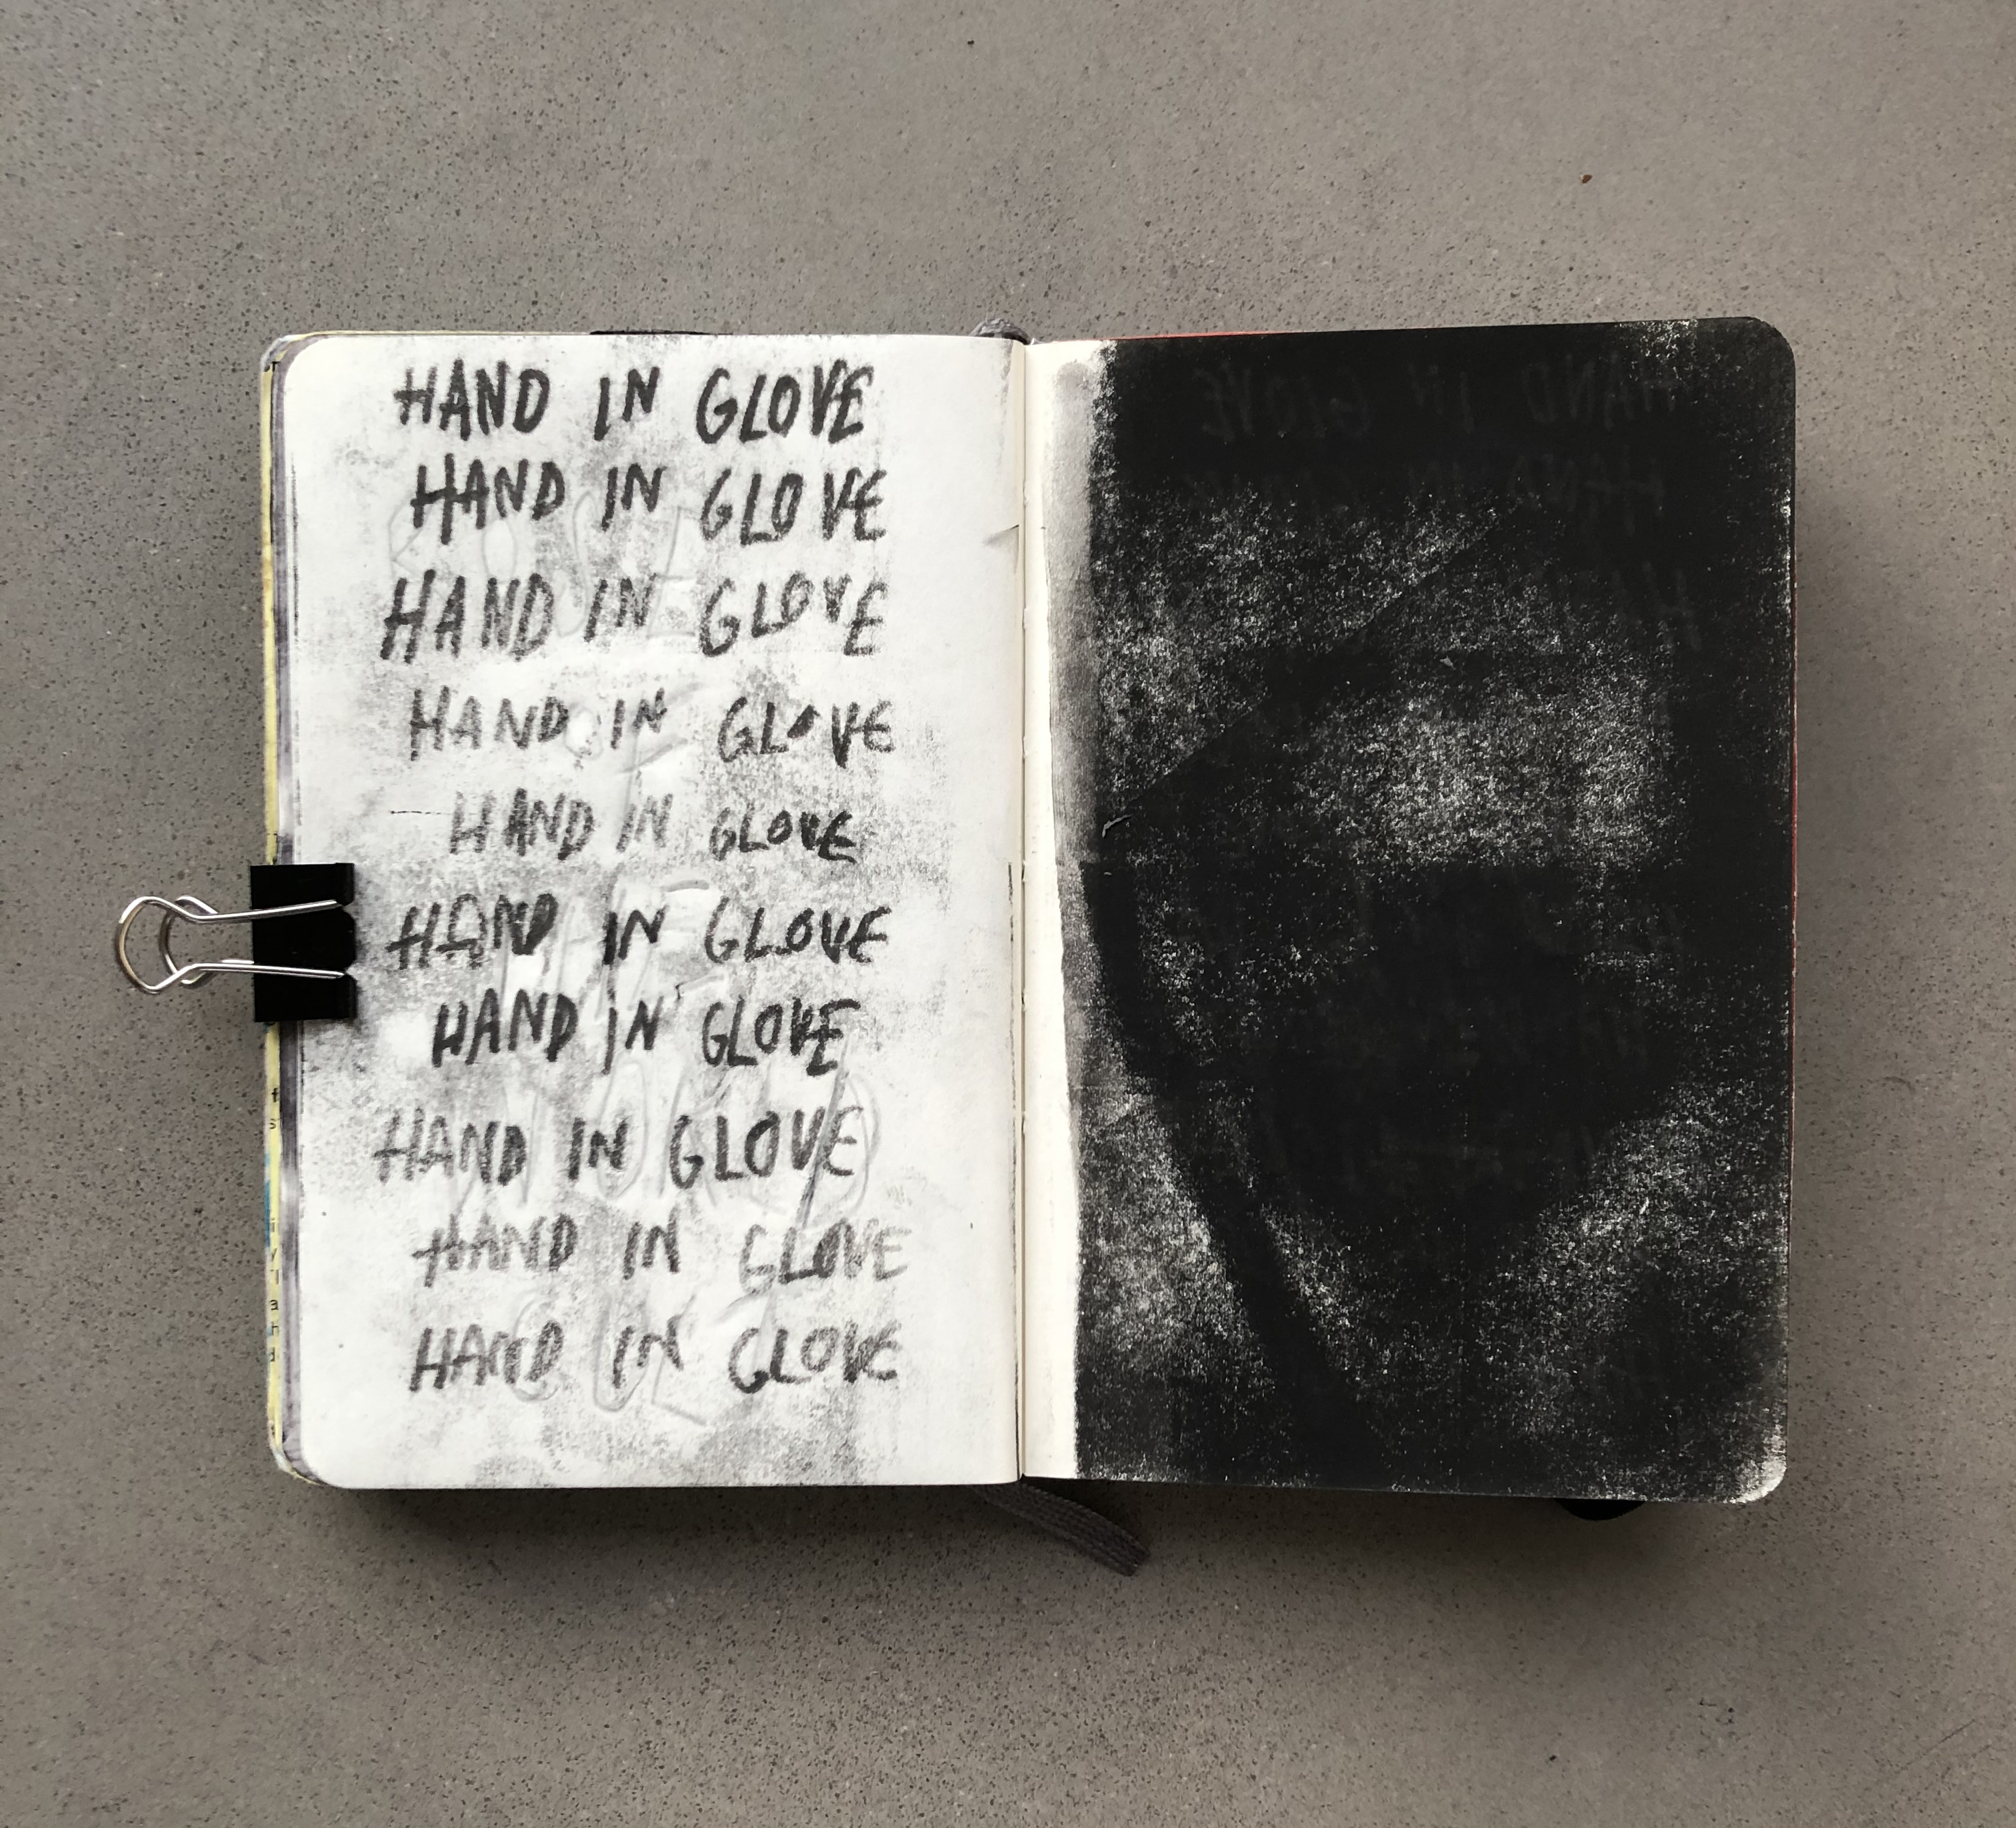 HAND IN GLOVE
HAND IN GLOVE
HAND IN GLOVE
HAND IN GLOVE
HAND IN GLOVE
HAND IN GLOVE
HAND IN GLOVE
HAND IN GLOVE
HAND IN GLOVE
HAND IN GLOVE